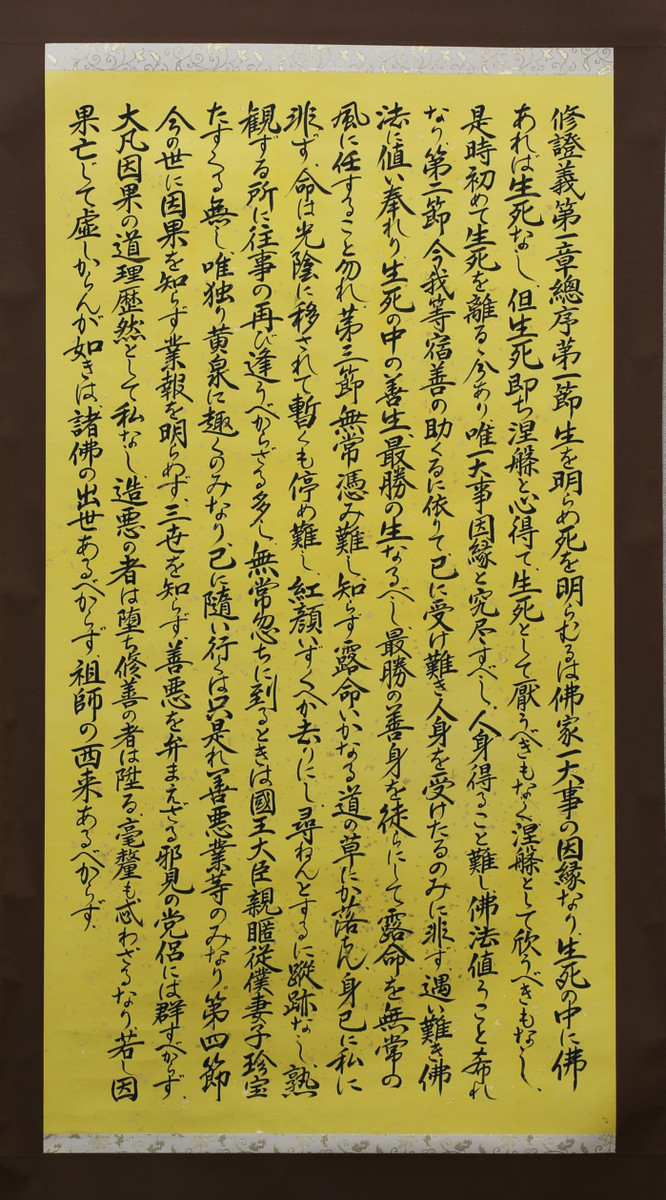 修證義第一章總序第一節生を明らめ死を明らむるは佛家一大事の因縁なり、生死の中に佛
あれば生死なし、但生死即ち涅槃と心得て、生死として厭うべきもなく涅槃として欣うべきもなし、
是時初めて生死を離るゝ分あり唯一大事因縁と究尽すべし、人身得ること難し佛法値うこと希れ
なり、第二節今我等宿善の助くるに依りて已に受け難き人身を受けたるのみに非ず遇い難き佛
法に値い奉れり、生死の中の善生、最勝の生なるべし、最勝の善身を徒らにして露命を無常の
風に任すること勿れ、第三節無常憑み難し、知らず露命いかなる道の草にか落ちん、身已に私に
非ず、命は光陰に移されて暫くも停め難し、紅顔いずくへか去りにし、尋ねんとするに蹤跡なし、熟
観ずる所に往事の再び逢うべからざる多し、無常忽ちに到るときは國王大臣親暱従僕妻子珍宝
たすくる無し、唯独り黄泉に趣くのみなり、已に隨い行くは只是れ善悪業等のみなり。第四節
今の世に因果を知らず業報を明らめず、三世を知らず、善悪を弁まえざる邪見の党侶には群すべからず、
大凡因果の道理歴然として私なし、造悪の者は堕ち修善の者は陞る、毫釐も忒わざるなり、若し因
果亡じて虚しからんが如きは、諸佛の出世あるべからず、祖師の西来あるべからず、